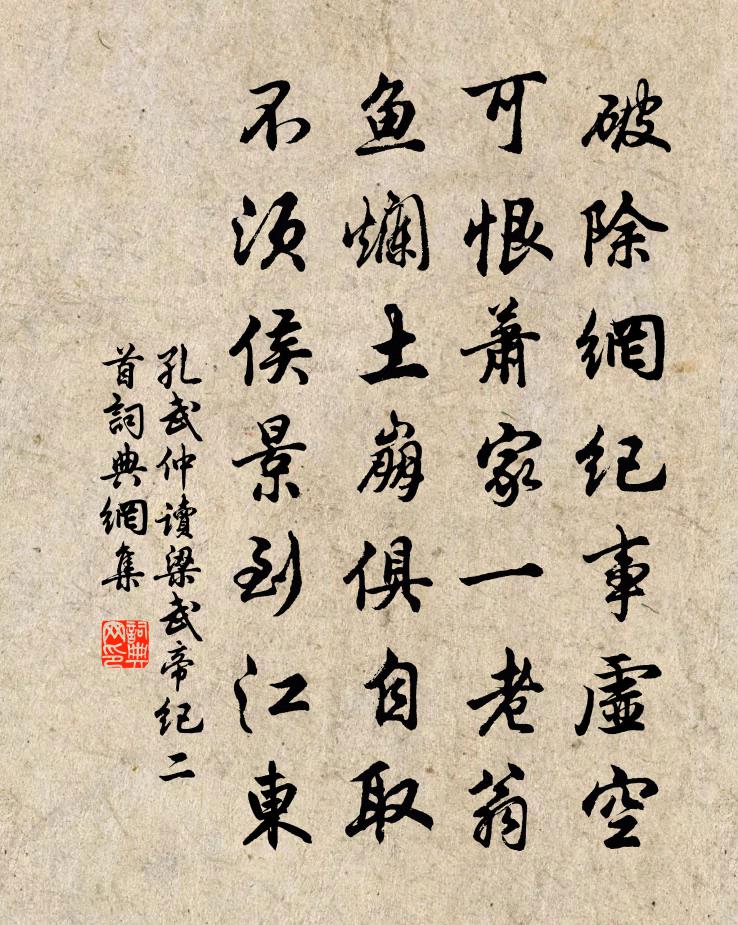 破除網紀事虛空
可恨蕭家一老翁
鱼爛土崩俱自取
不須侯景到江東
孔武仲讀梁武帝紀二
首詞典網集
詞典
网印